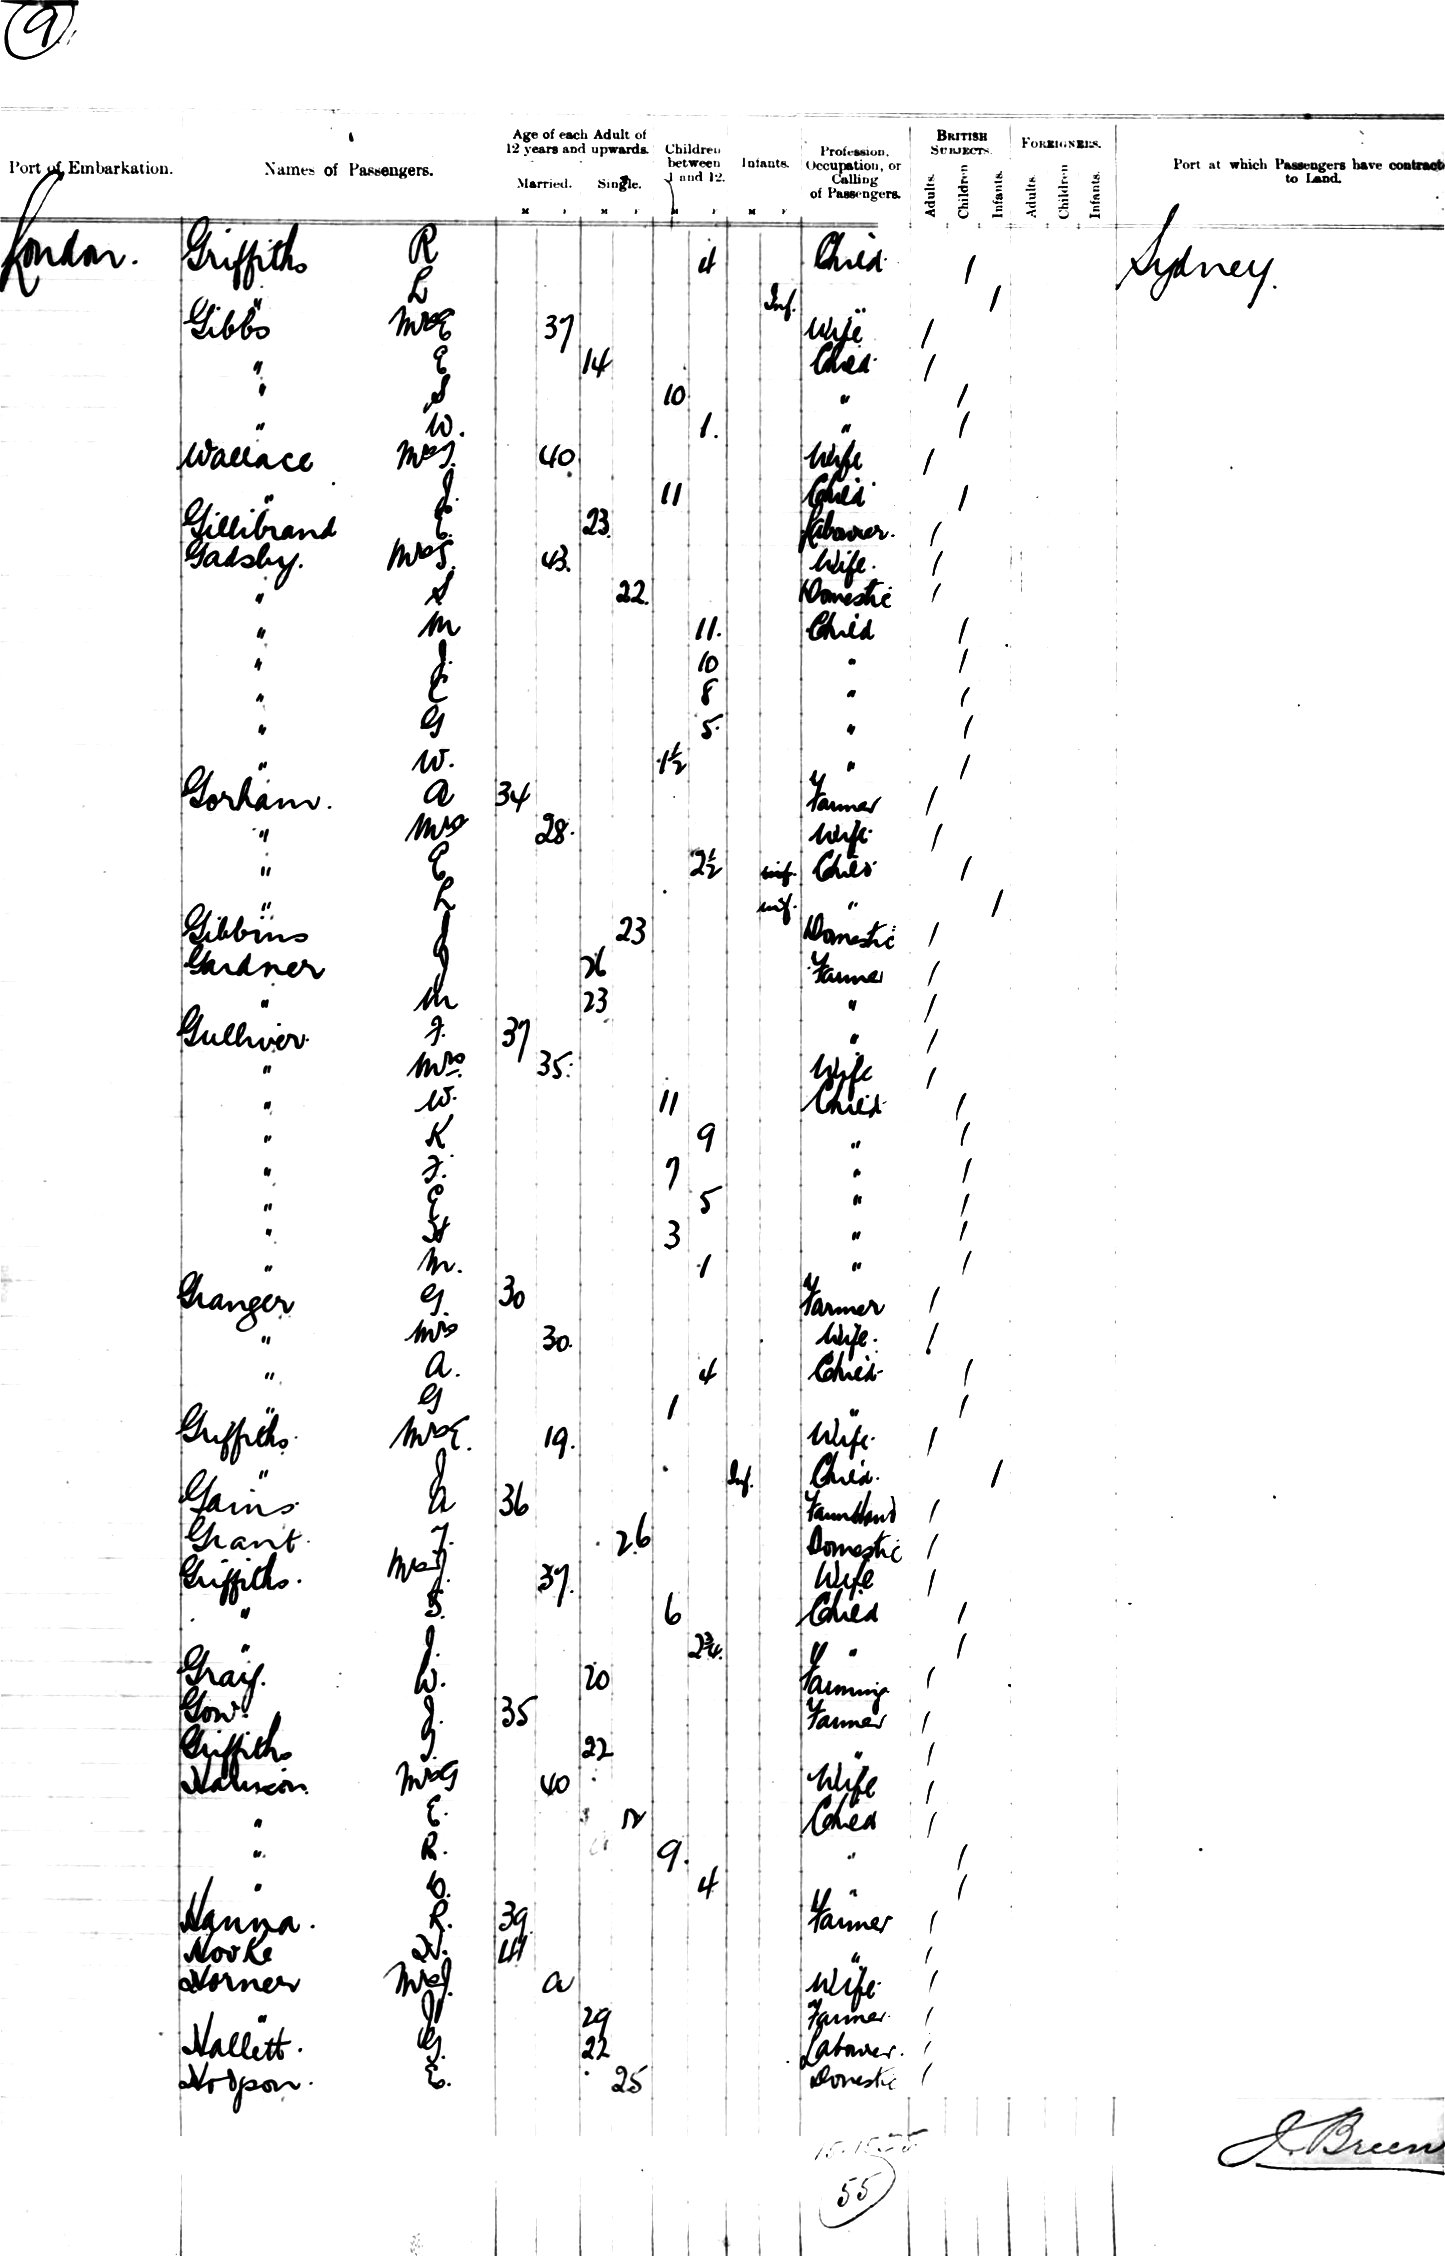 9
Port of Embarkation. Names of Passengers. Age of each Adult of 12 years and upwards. Married. Single. Children between 1 and 12. Infants. Profession, Occupation, or Calling of Passengers. BRITISH SUBJECTS. Adults. Children Infants. FOREIGNERS. Adults. Children Infants. Port at which Passengers have contract to Land.
M F M F M F M F
London. Griffiths R 4 Child 1 Sydney.
" L Inf. " 1
Gibbs Mrs E 37 Wife 1
" E 14 Child 1
" S 10 " 1
" W. 1. " 1
Wallace Mrs J. 40 Wife 1
" J. 11 Child 1
Gillibrand E. 23 Labourer. 1
Gadsby. Mrs S. 43. Wife. 1
" S 22. Domestic 1
" M 11. Child 1
" J. 10 " 1
" E 8 " 1
" G 5. " 1
" W. 1½ " 1
Gorham. A 34 Farmer 1
" Mrs 28. Wife. 1
" E 2½ inf. Child 1
" L inf. " 1
Gibbins J 23 Domestic 1
Gardner J 26 Farmer 1
" M 23 " 1
Gulliver. F. 37 " 1
" Mrs. 35. Wife 1
" W. 11 Child 1
" K 9 " 1
" F. 7 " 1
" E 5 " 1
" H 3 " 1
" M. 1 " 1
Granger G. 30 Farmer 1
" Mrs 30. Wife. 1
" A. 4 Child 1
" G 1 " 1
Griffiths. Mrs E. 19. Wife. 1
" J Inf. Child. 1
Gains. A 36 Farmhand 1
Grant. F. 26 Domestic 1
Griffiths. Mrs J. 37. Wife 1
" S. 6 Child 1
" J. 2¾. " 1
Gray. W. 20 Farming 1
Gow. J. 35 Farmer 1
Griffiths J. 22 " 1
Mrs G 40 Wife 1
" E. 12 Child 1
" R. 9. " 1
" 4 " 1
Hanna. R. 39. Farmer 1
Hooke W. " 1
Horner Mrs J. a Wife. 1
" J 29 Farmer. 1
Hallett. G. 22 Labourer. 1
Hodgson. E. 25 Domestic 1
55
J. Breen